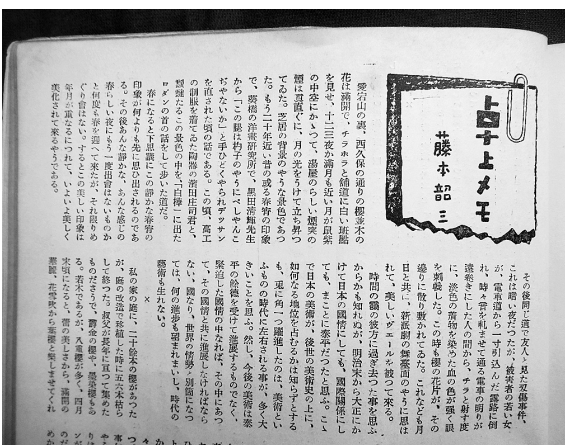 卓上メモ
藤本韶三
愛宕山の裏、西久保の通りの櫻並木の
花は滿開で、チラホラと舗道に白い斑點
を見せ、十二三夜か滿月も近い月が鼠紫
の中空にかゝつて、湯屋のらしい煙突の
煙は眞直ぐに、月の光をうけて立ち昇つ
てゐた。芝居の背景のやうな景色であつ
た。もう二十年近い昔の或る春宵の印象
で、葵橋の洋畫研究所で、黒田清輝先生
から「この腿は杓子のやうにべしやんこ
ぢやないか」と手ひどくやられデツサン
を直された頃の話である。この頃、高工
の制服を着てゐた陶器の濱田庄司君と、
朦朧たるこの景色の中を、「白樺」に出た
ロダンの首の話をして歩いた道だ。
春になると不思議にこの靜かな春宵の
印象が何よりも先に思ひ出されるのであ
る。その後あんな靜かな、あんな感じの
春らしい夜にもう一度出會はないものか
と何度も春を迎へて來たが、それ限りめ
ぐり會はない。するとこの美しい印象は
年月が重なるにつれて、いよいよ美しく
美化されて來るやうである。
その後同じ道で友人と見た刄傷事件、
これは暗い夜だつたが、被害者の若い女
が、電車道から一寸引込んだ露路に倒
れ、時々音を軋ませて通る電車の明りが
遠卷きにした人の間から、チラと射す度
に、淡色の着物を染めた血の色が强く眼
を刺戟した。この時も櫻の花片が、その
邊りに散り敷かれてゐた。これなども月
日と共に、新派劇の舞臺面のやうに思は
れて、美しいヴエールを被つて來る。
時間の靄の彼方に過ぎ去つた事を思ふ
からかも知れぬが、明治末から大正にか
けて日本の國情にしても、國際關係にし
ても、まことに泰平だつたと思ふ。こゝ
で日本の美術が、後世の美術史の上に、
如何なる地位を占むるかは知らずとする
も、兎に角一つ躍進したのは、美術とい
ふものの時代に左右される事が、多く大
きいことを思ふ。然し、今後の美術は泰
平の餘德を受けて進展するものでなく、
緊迫した國情の中なれば、その中にあつ
て、その國情と共に進展しなければなら
ない、國なり、世界の情勢と別箇になつ
ては、何の進步も望まれまいし、時代の
藝術も生れない。
×
私の家の庭に、二十餘本の櫻があつた
が、庭の改造で移植した時に五六本枯ら
して終つた。叔父が長年に亙つて集めた
ものださうで、鬱金の櫻や、墨染櫻もあ
る。若木であるが、八重櫻が多く、四月
末頃になると、蕾の美しさから、滿開の
華麗、花雪吹から葉櫻と樂しませてくれ